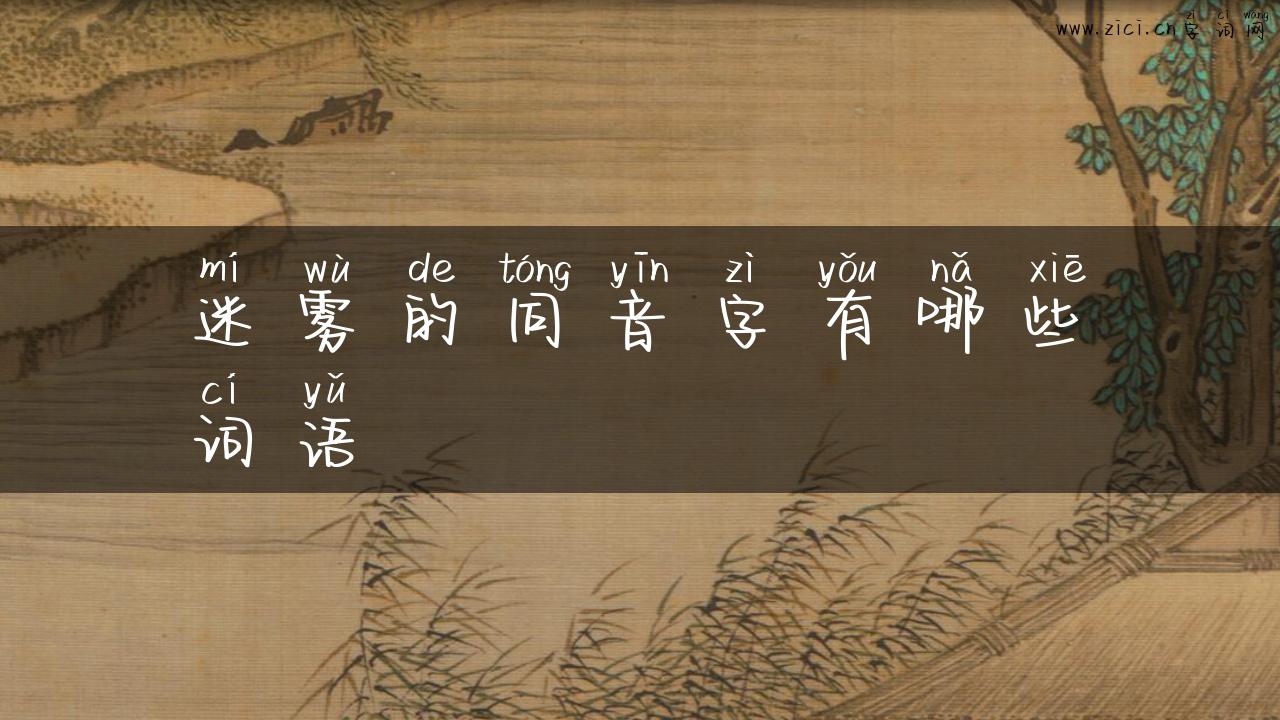 zì cí wǎng
www.zici.cn字词网
mí wù de tóng yīn zì yǒu nǎ xiē
迷雾的同音字有哪些
cí yǔ
词语